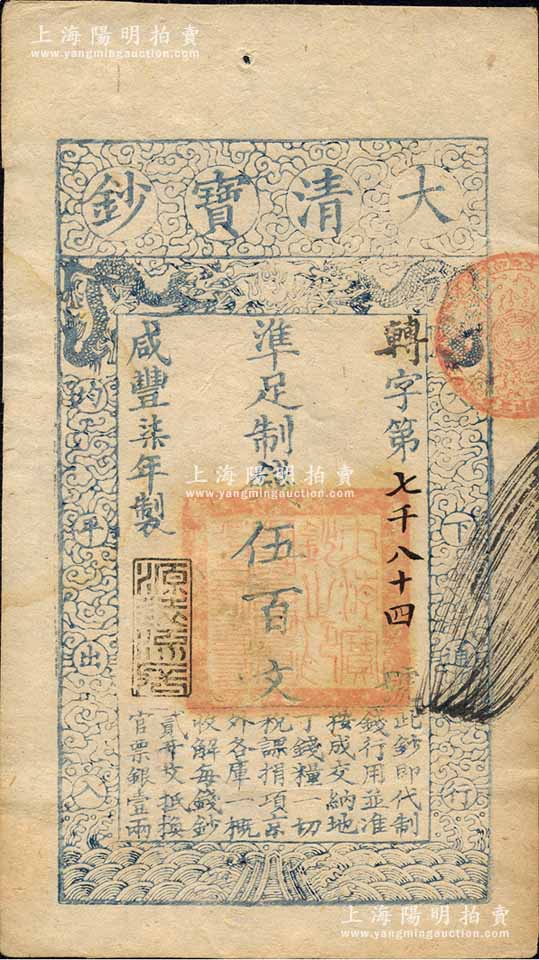 上海陽明拍賣
www.yangmingauction.com
大清寶鈔
轉字第七千八十四號
準足制錢伍百文
咸豐柒年製
下通行
均平出入
此鈔即代制
錢行用並准
按成交納地
丁錢糧一切
稅課捐項京
外各庫一概
收解每錢鈔
貳千文抵換
官票銀壹兩
上海陽明拍賣
www.yangmingauction.com
上海陽明拍賣
www.yangmingauction.com